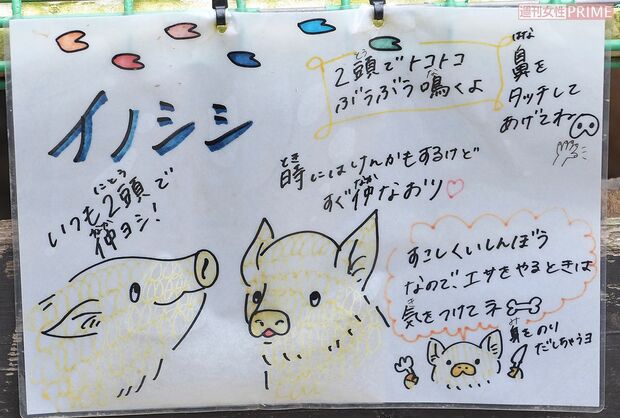 週刊女性PRIME
イノシシ
2頭でトコトコ
ぶうぶう鳴くよ
鼻を
タッチして
あげてね
時にはけんかもするけど
すぐ仲なおり♡
いつも2頭で
仲ヨシ！
すこしくいしんぼう
なので、エサをやるときは
気をつけてネ
身をのり
だしちゃうヨ